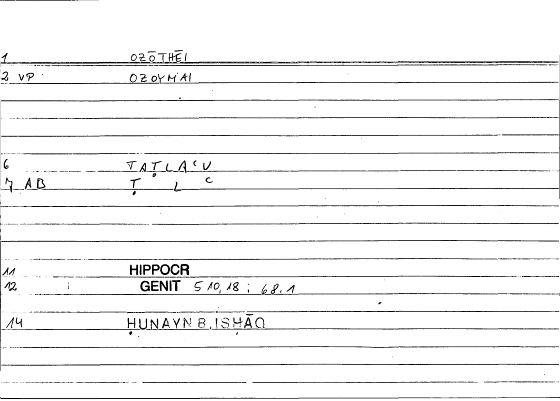 1 OZŌTHĒI
2 VP OZOYMAI
6 TAṬLAʿU
7 AB Ṭ L ʿ
11 HIPPOCR
12 GENIT 510,18 ; 68.1
14 ḤUNAYN B. ISḤĀQ